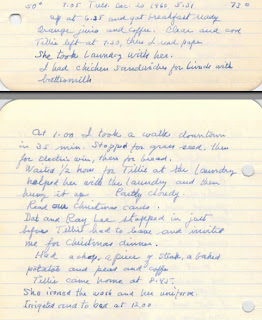 50° 7:05 Tues. Dec. 20 1960 5:21 73°
up at 6:35 and got breakfast ready
Orange juice and coffee. Clear and cool
Tillie left at 7:20, then I read paper
She took laundry with her.
I had chicken sandwiches for lunch with
buttermilk
At 1:00 I took a walk downtown
in 35 min. Stopped for grass seed, then
for electric wire, then for bread.
Waited ½ hour for Tillie at the Laundry
helped her with the laundry and then
hung it up Partly Cloudy
Read our Christmas cards.
Deb and Ray Lee stopped in just
before Tillie had to leave and invited
me for Christmas dinner.
Had a chop, a piece of steak, a baked
potatoe and peas and coffee
Tillie came home at 8:45.
She ironed the wash and her uniform.
Irrigated and to bed at 12:00